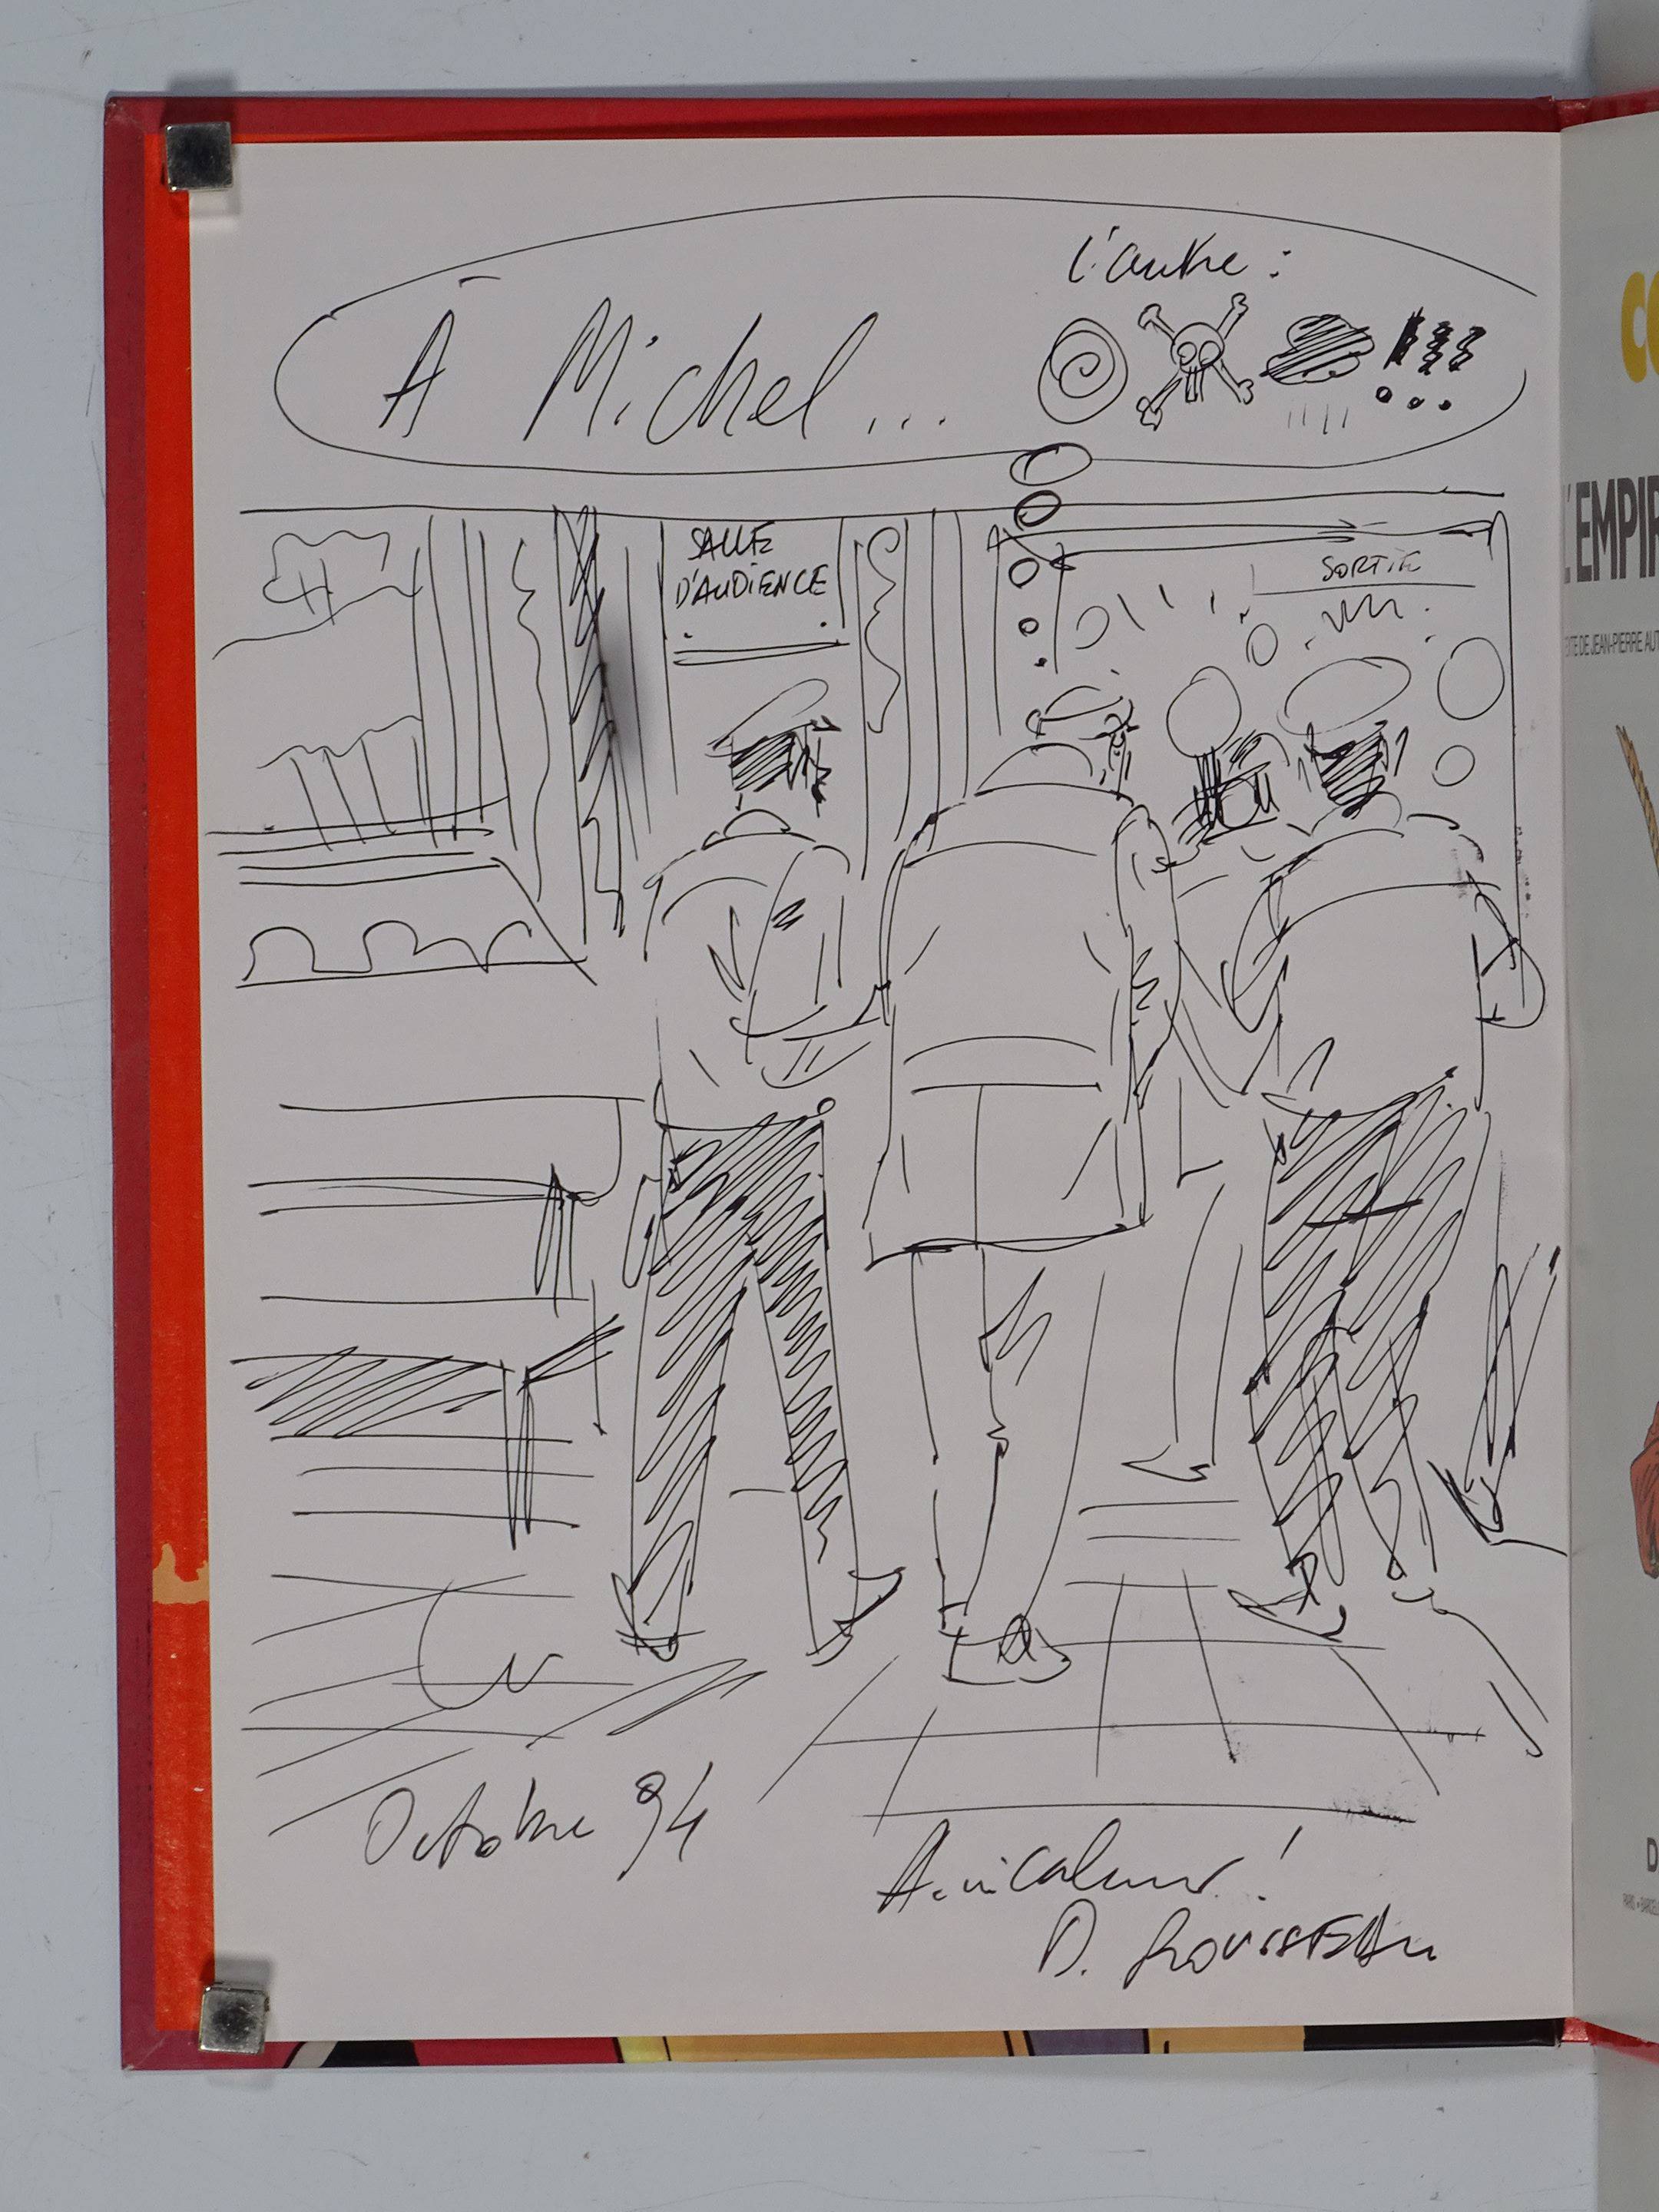 l'autre :
À Michel...
SALLE
D'AUDIENCE
SORTIE
Octobre 94
Amicalement !
D. ROUSSEAU
CO
L'EMPIR
TEXTE DE JEAN-PIERRE AUT
D